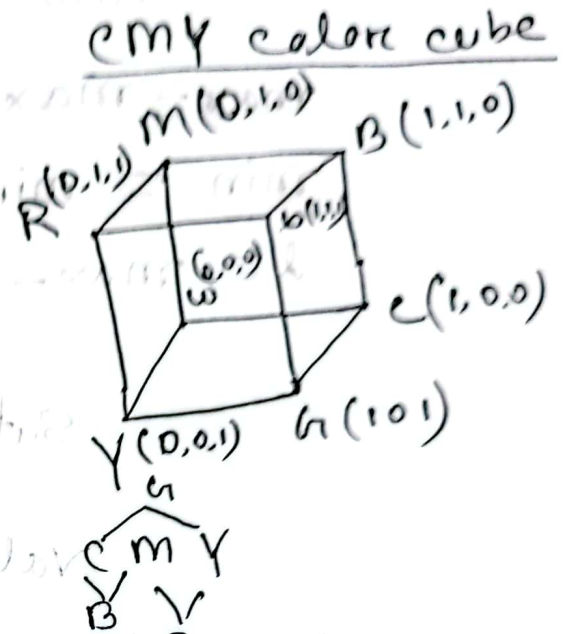 CMY color cube
M(0,1,0)
B(1,1,0)
R(0,1,1)
b(1,1,1)
(0,0,0)
W
C(1,0,0)
Y(0,0,1)
G(101)
G
C M Y
B